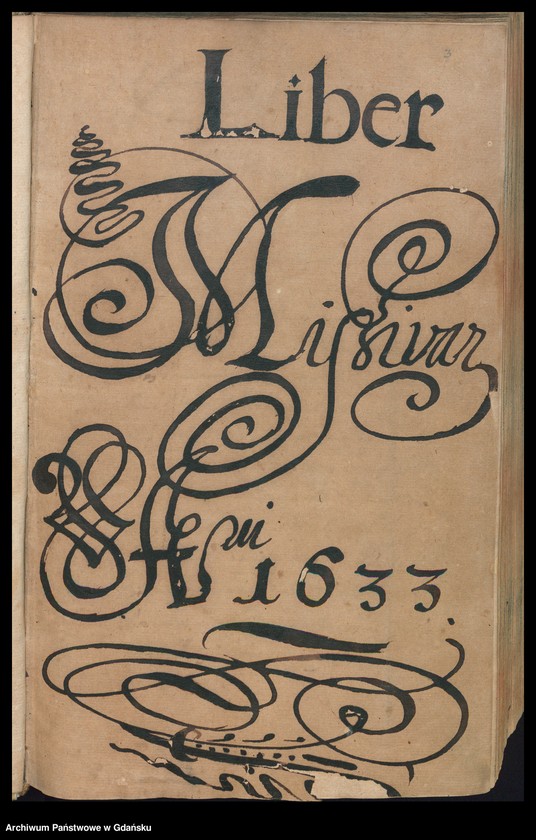 Liber
Missivar
Anni
1633.
Archiwum Państwowe w Gdańsku